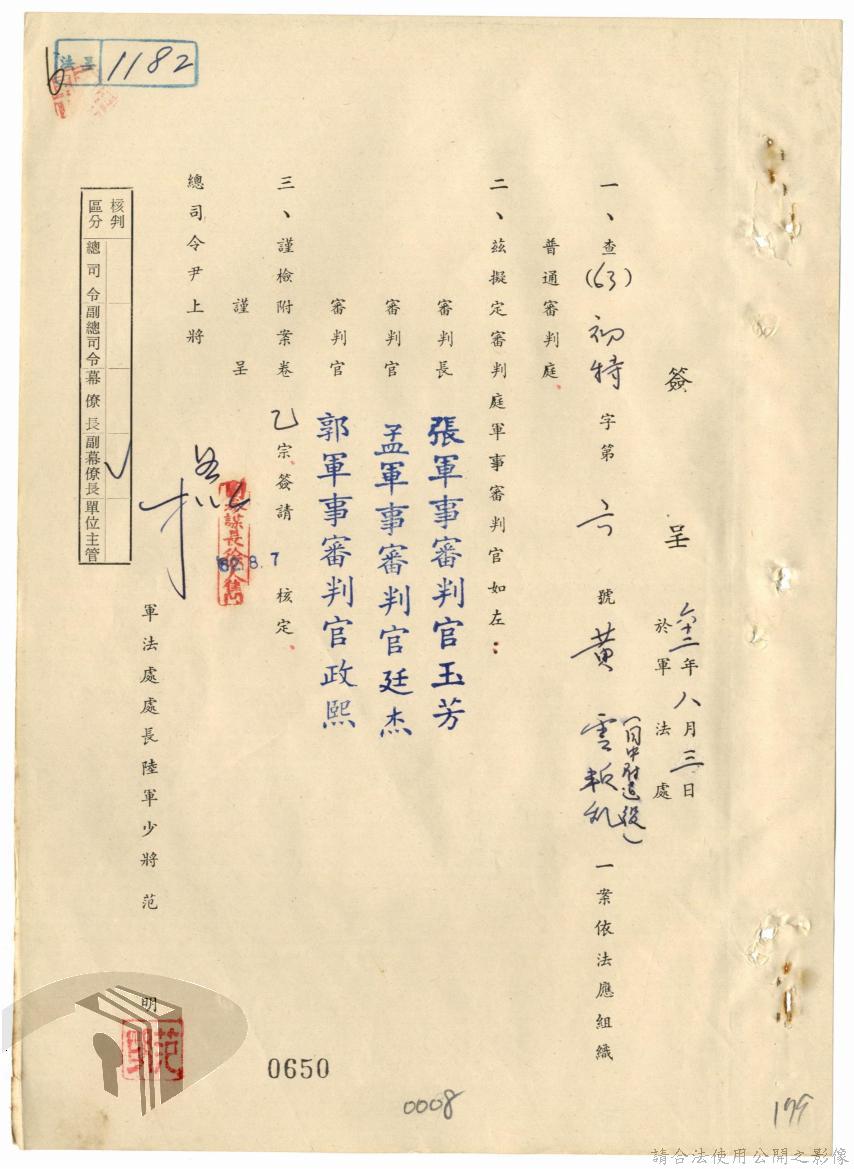 呈法 1182
簽呈
六十二年八月三日
於軍法處
一、查(63)初特字第六號黃雲叛亂一案依法應組織
(同中尉退役)
普通審判庭。
二、茲擬定審判庭軍事審判官如左：
審判長 張軍事審判官玉芳
審判官 孟軍事審判官廷杰
審判官 郭軍事審判官政熙
三、謹檢附案卷乙宗簽請核定。
謹呈
總司令尹上將
62.8.7
軍法處處長陸軍少將范明
范明
核判區分
總司令
副總司令
幕僚長
副幕僚長
單位主管
0650
0008
179
請合法使用公開之影像